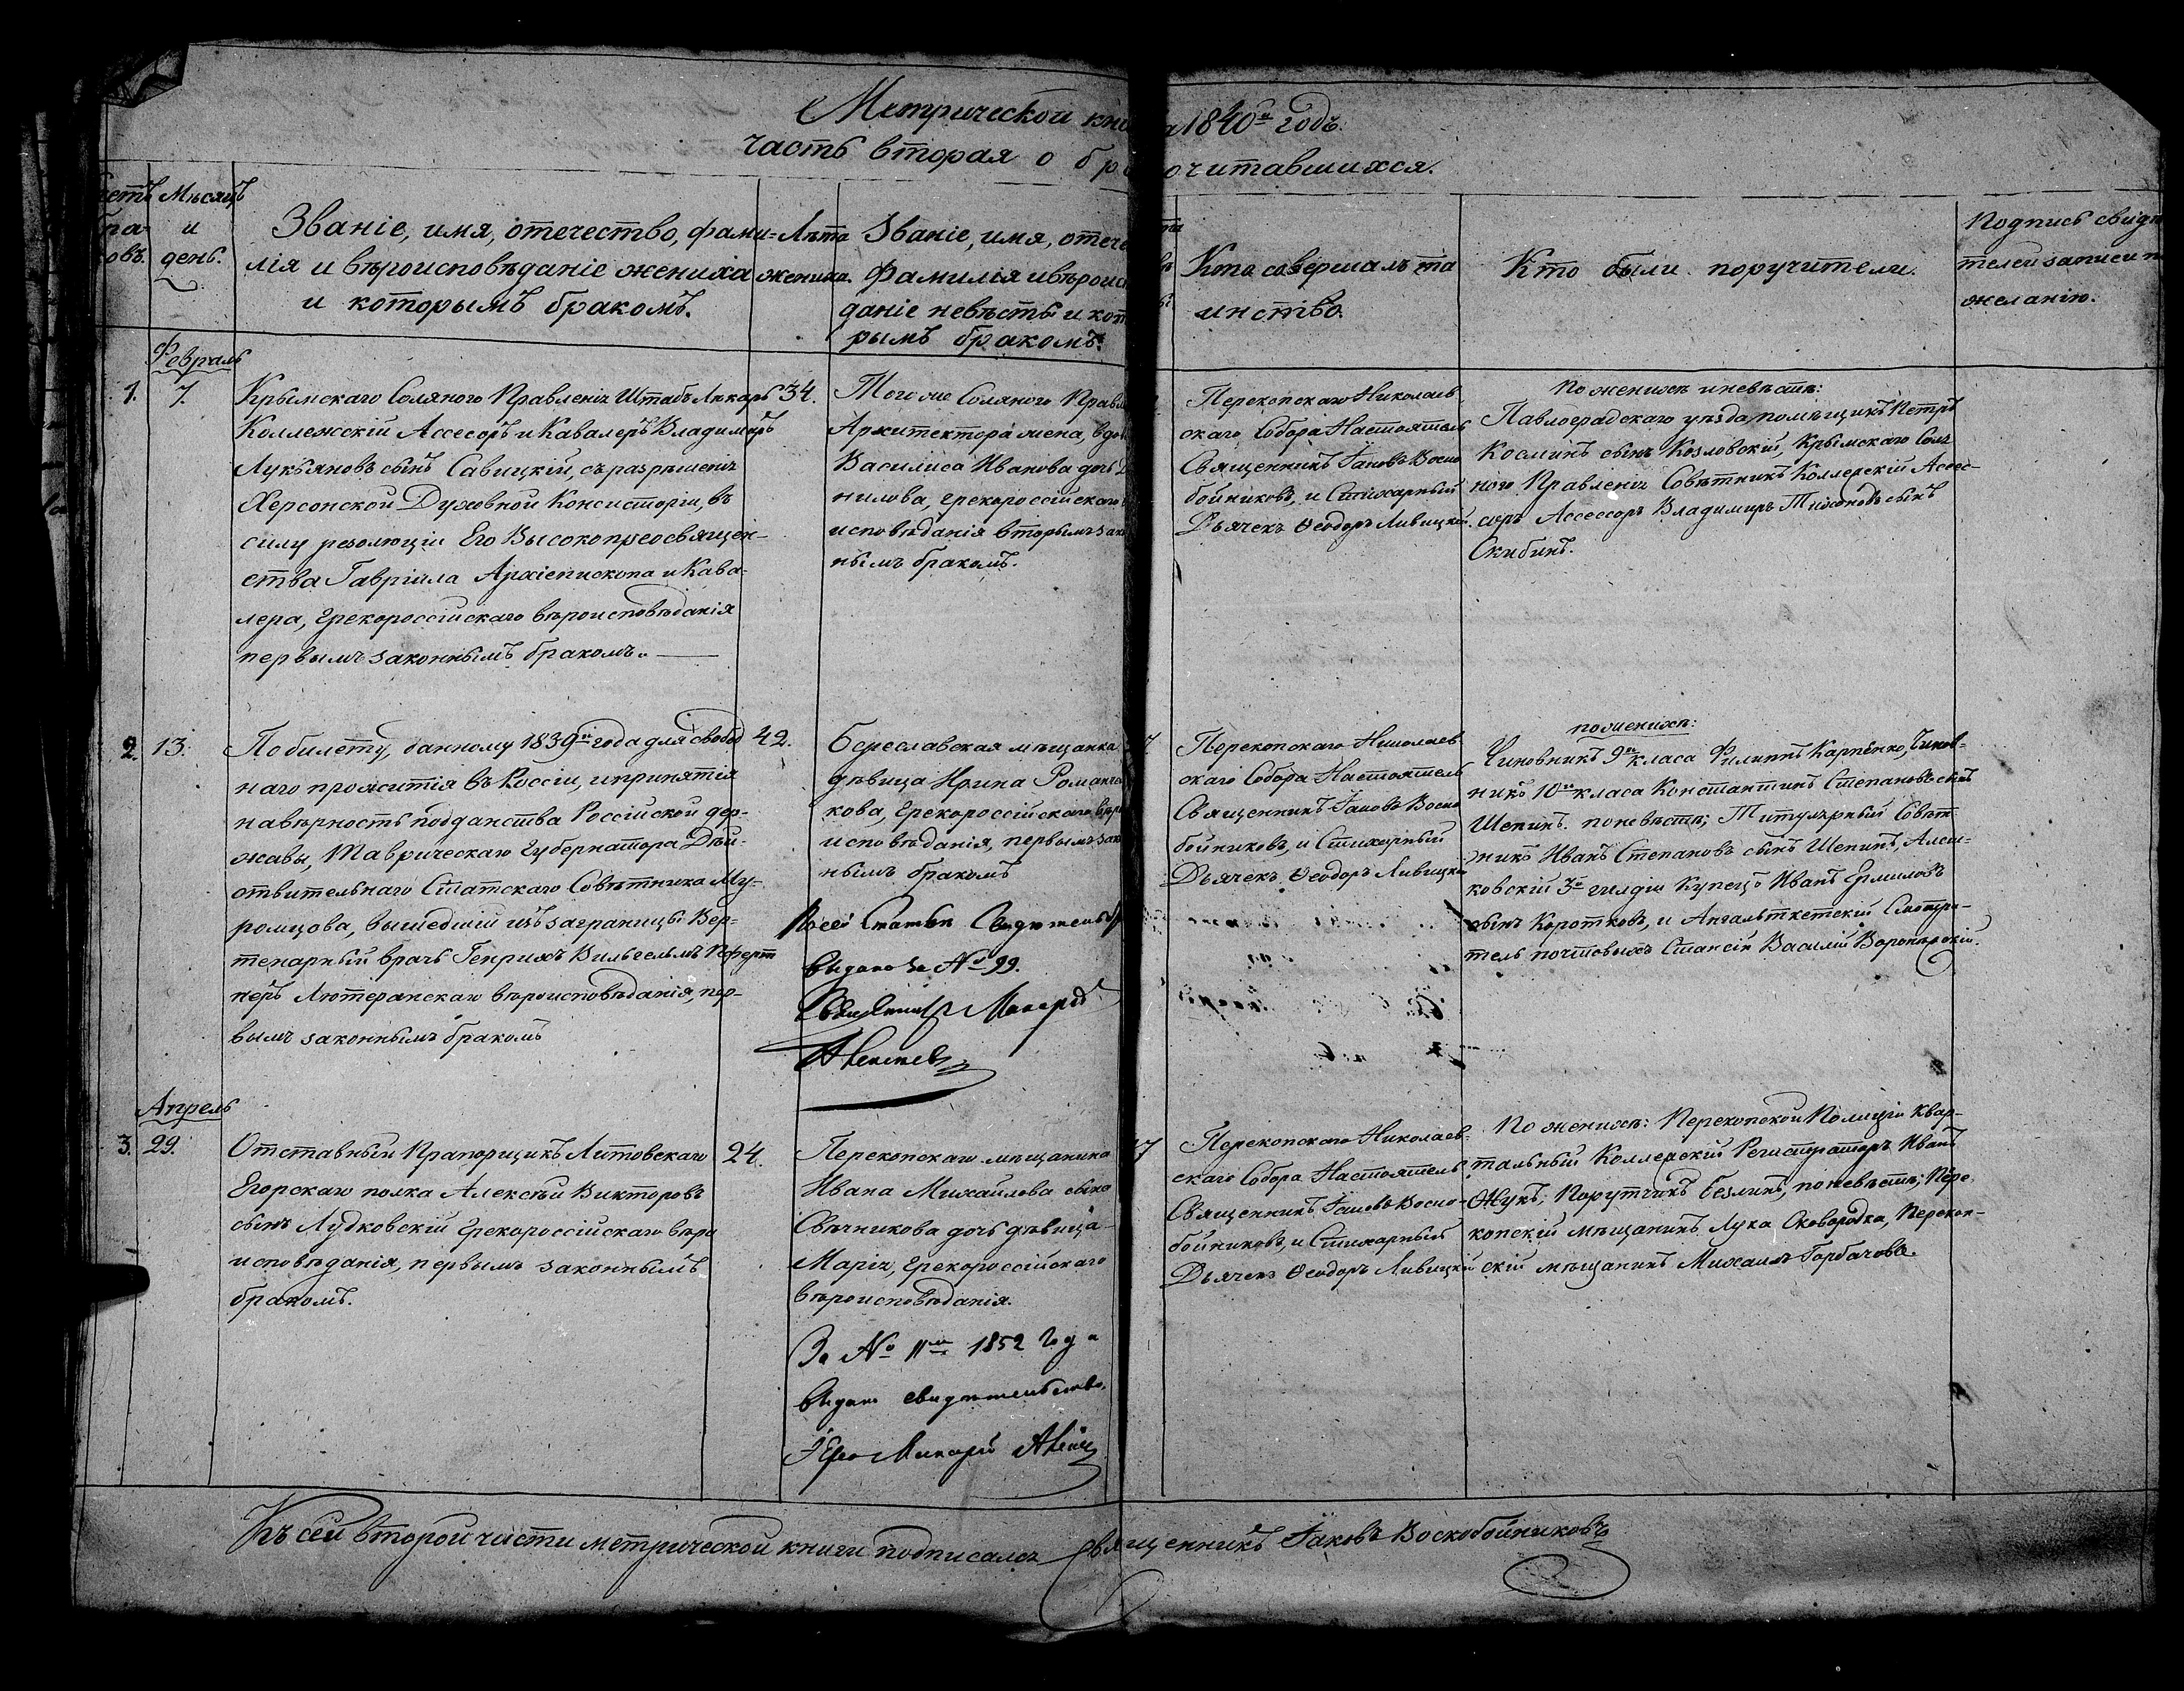 Метрической кни
а 1840го годъ.
часть вторая о бра
очитавшихся.
четъ
бра
ковъ.
Мѣсяцъ
и
день.
Званіе, имя, отечество, фами=
лія и вѣроисповѣданіе жениха
и которымъ бракомъ.
Лѣта
жениха.
Званіе, имя, отече
фамилія и вѣроис
даніе невѣсты и кот
рымъ бракомъ.
Кто совершалъ та
инство.
Кто были поручители.
Подпись свидѣ
телей записи п
желанію.
Февраль
1. 7.
Крымскаго Солянаго Правленія Штабъ Лѣкарь
Коллежскій Ассесоръ и Кавалеръ Владимиръ
Лукьяновъ сынъ Савицкій, съ разрѣшенія
Херсонской Духовной Консисторіи, въ
силу резолюціи Его Высокопреосвящен-
ства Гавріила Архіепископа и Кава-
лера, грекороссійскаго вѣроисповѣданія
первымъ законнымъ бракомъ.
34.
Того же Солянаго Правл
Архитектора жена, вдо
Василиса Иванова дочь
нилова, грекороссійскаго
исповѣданія вторымъ зако
нымъ бракомъ.
Перекопскаго Николаев
скаго Собора Настоятель
Священникъ Іаковъ Воско
бойниковъ, и Стихарный
Дьячекъ Ѳеодоръ Ливицкій.
По женихѣ и невѣстѣ:
Павлоградскаго уѣзда помѣщикъ Петръ
Косминъ сынъ Козловскій, Крымскаго Соля
наго Правленія Совѣтникъ Коллежскій Ассес-
соръ Ассессоръ Владимиръ Тихоновъ сынъ
Скибинъ.
2. 13.
По билету, данному 1839го года для свобод
наго прожитія въ Россіи, и принятія
на вѣрность подданства Россійской дер-
жавы, Таврическаго Губернатора Дѣй-
ствительнаго Статскаго Совѣтника Му-
ромцова, вышедшій изъ заграницы Вер-
теринарный врачъ Генрихъ Вильгельмъ
неръ Лютеранскаго вѣроисповѣданія, пер-
вымъ законнымъ бракомъ
42.
Береславская мѣщанка
дѣвица Ирина Романча
кова, Грекороссійскаго вѣро
исповѣданія, первымъ зак
нымъ бракомъ
Свидѣтельст
выдано за № 99.
Священникъ Макарій
Перекопскаго Николаев
скаго Собора Настоятель
Священникъ Іаковъ Воско
бойниковъ, и Стихарный
Дьячекъ Ѳеодоръ Ливицкій
по женихѣ:
Чиновникъ 9го класа Филиппъ Карпенко, Чинов-
никъ 10го класа Константинъ Степановъ сынъ
Шепинъ. по невѣстѣ; Титулярный Совѣт
никъ Иванъ Степановъ сынъ Шепинъ, Алеш-
ковскій 3й гилдіи Купецъ Иванъ Ермиловъ
сынъ Коротковъ, и Смотри-
тель почтовыхъ Стансій Василій
Апрель
3. 29.
Отставный Прапорщикъ Литовскаго
Егерскаго полка Алексѣй Викторовъ
сынъ Лудковскій Грекороссійскаго вѣро
исповѣданія, первымъ законнымъ
бракомъ.
24.
Перекопскаго мѣщанина
Ивана Михайлова сына
Свѣчникова дочь дѣвица
Марія, Грекороссійскаго
вѣроисповѣданія.
За № 11м 1852 Года
выдано свидѣтельство.
Макарій
7
Перекопскаго Николаев-
скаго Собора Настоятель
Священникъ Іаковъ Воско-
бойниковъ, и Стихарный
Дьячекъ Ѳеодоръ Ливицкій
По женихѣ: Перекопской Полиціи Квар-
тальный Коллежскій Регистраторъ Иванъ
Жукъ; Порутчикъ Безлинъ, по невѣстѣ; Пере
копскій мѣщанинъ Лука Сковородка, Перекоп-
скій мѣщанинъ Михаилъ Горбачовъ.
Къ сей второй части метрической книги подписался Священникъ Іаковъ Воскобойниковъ